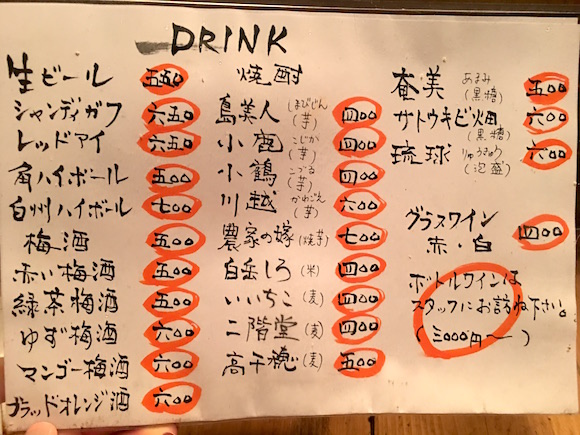 DRINK
生ビール 五五〇
シャンディガフ 六五〇
レッドアイ 六五〇
角ハイボール 五〇〇
白州ハイボール 七〇〇
梅酒 五〇〇
赤い梅酒 五〇〇
緑茶梅酒 五〇〇
ゆず梅酒 六〇〇
マンゴー梅酒 六〇〇
ブラッドオレンジ酒 六〇〇
焼酎
島美人 (しまびじん) (芋) 四〇〇
小鹿 こじか (芋) 四〇〇
小鶴 こづる (芋) 四〇〇
川越 かわごえ (芋) 六〇〇
農家の嫁 (焼芋) 七〇〇
白岳しろ (米) 四〇〇
いいちこ (麦) 四〇〇
二階堂 (麦) 四〇〇
高千穂 (麦) 五〇〇
奄美 あまみ (黒糖) 五〇〇
サトウキビ畑 (黒糖) 六〇〇
琉球 りゅうきゅう (泡盛) 六〇〇
グラスワイン
赤・白 四〇〇
ボトルワインは
スタッフにお訪ね下さい。
(三〇〇〇円〜)